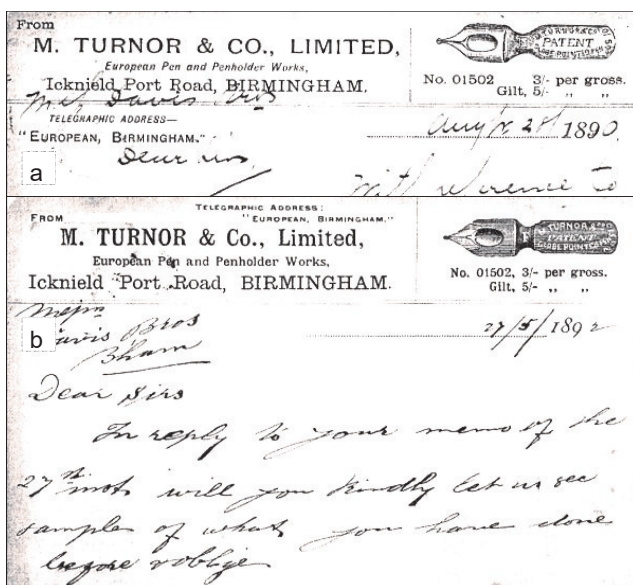 From
M. TURNOR & CO., LIMITED,
European Pen and Penholder Works,
Icknield Port Road, BIRMINGHAM.
M. TURNOR & CO
PATENT
No. 01502 3/- per gross.
Gilt, 5/- „ „
Davis Bros
TELEGRAPHIC ADDRESS—
"EUROPEAN, BIRMINGHAM."
1890
Dear
a
TELEGRAPHIC ADDRESS:
"EUROPEAN, BIRMINGHAM."
FROM
M. TURNOR & Co., Limited,
European Pen and Penholder Works,
Icknield Port Road, BIRMINGHAM.
PATENT
No. 01502, 3/- per gross.
Gilt, 5/- „ „
Davis Bros
Bham
b
27/5/1892
Dear Sirs
In reply to your memo of the
27th inst will you kindly let us see
samples of what you have done
before & oblige